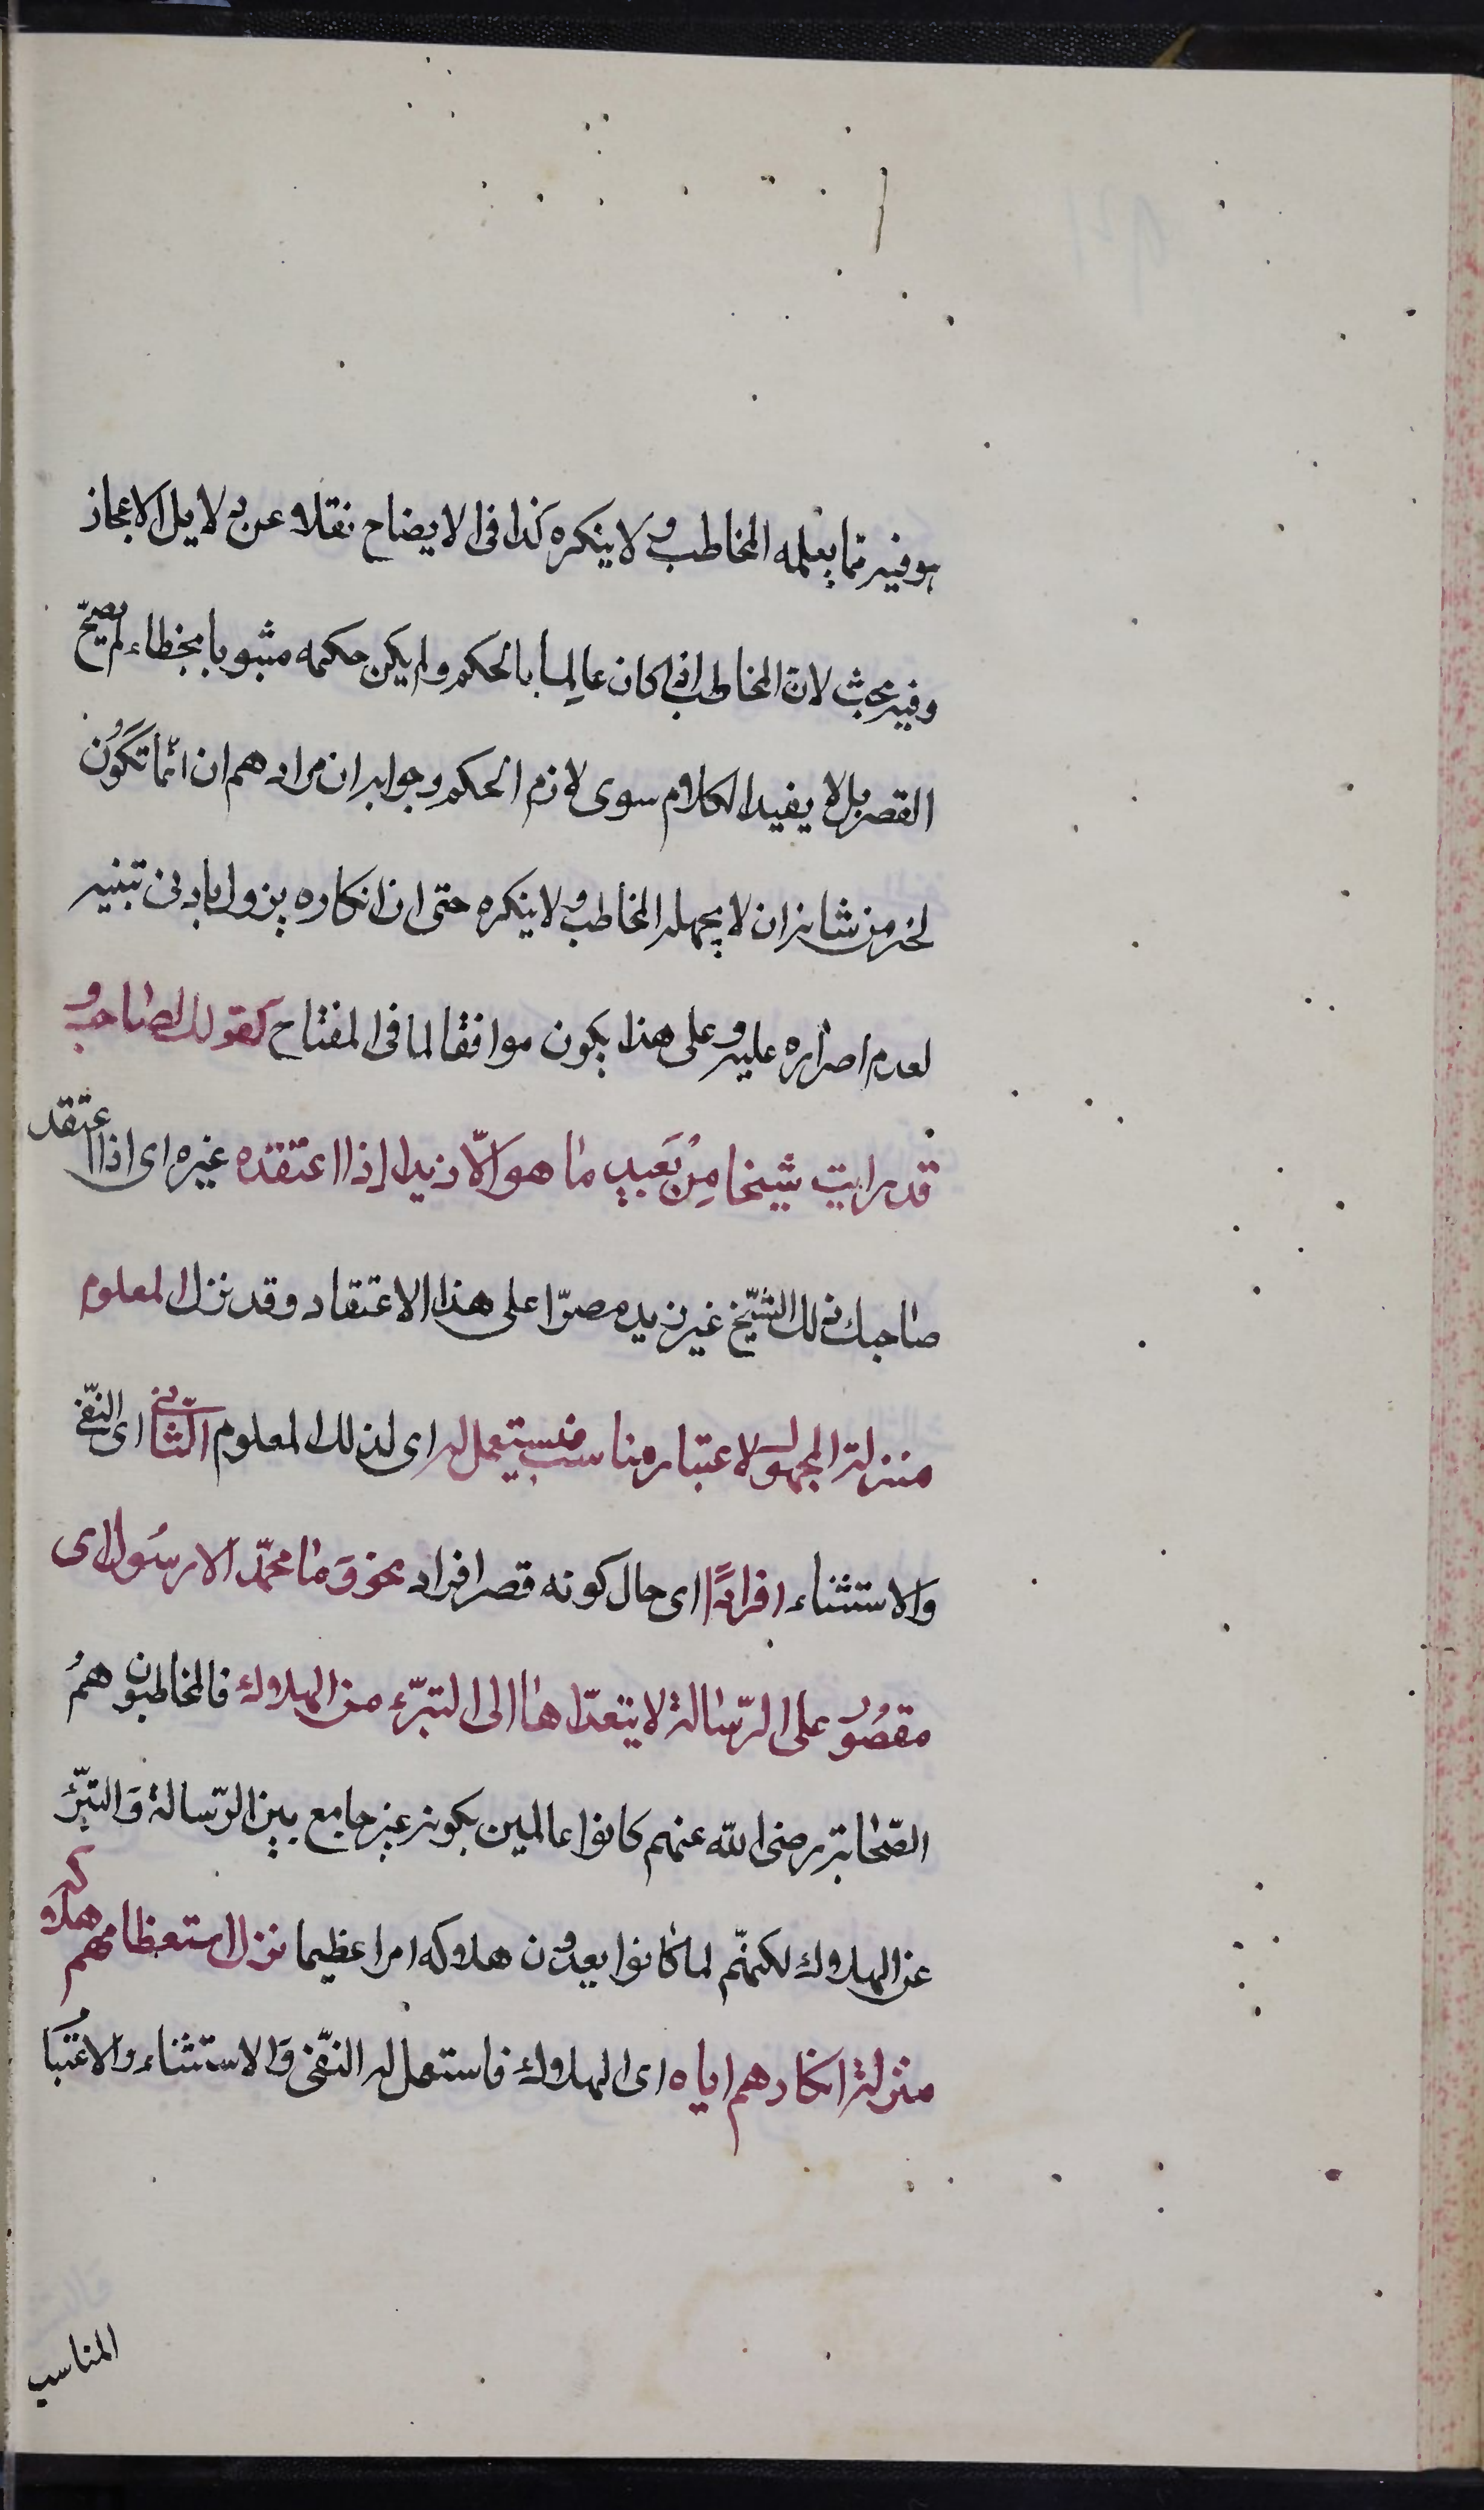 هو فيه مما يعلمه المخاطب ولا ينكره كذا فى الايضاح نقلا عن دلايل الاعجاز
وفيه بحث لان المخاطب اذا كان عالما بالحكم ولم يكن حكمه مشوبا بخطاء لم يصح
القصر بل لا يفيد الكلام سوى لازم الحكم وجوابه ان مرادهم ان انما تكون
لخبر من شانه ان لا يجهله المخاطب ولا ينكره حتى ان انكاره يزول بادنى تنبيه
لعدم اصراره عليه وعلى هذا يكون موافقا لما فى المفتاح كقولك لصاحبك و
قد رايت شبخا من بَعيد ما هو الّا زيد اذا اعتقده غيره اى اذا اعتقد
صاحبك ذلك الشّبخ غير زيد مصرّا على هذا الاعتقاد وقد نزل المعلوم
منزلة المجهول لاعتبار مناسب فيستعمل له اى لذلك المعلوم الثّانى اى النّفى
والاستثناء افرادًا اى حال كونه قصر افراد نحو وَما محمّد الا رسُول اى
مقصُور على الرّسالة لا يتعدّاها الى التبرّء من الهلاك فالمخاطبون همُ
الصّحابة رضى الله عنهم كانوا عالمين بكونه غير جامع بين الرّسالة وَالتبرّء
عن الهلاك لكنهّم لما كانوا يعدون هلاكه امرا عظيما نزل استعظامهم هلاكه
منزلة انكارهم اياه اى الهلاك فاستعمل له النّفى وَالاستثناء والاعتبا
المناسب